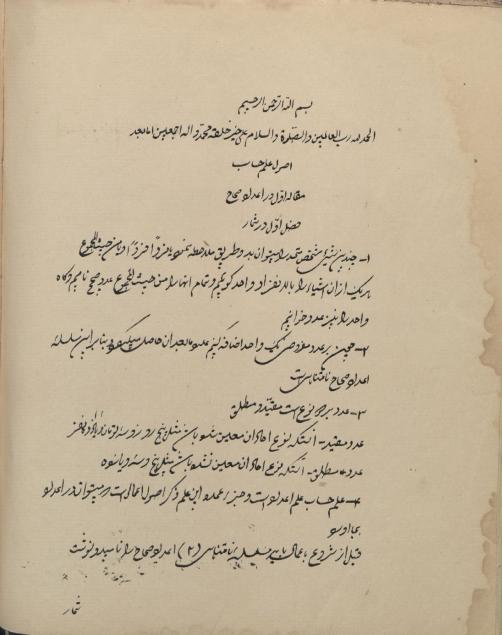 بسم الله الرحمن الرحیم
الحمد لله رب العالمین و الصلوة و السلام علی خیر خلقه محمد و اله اجمعین اما بعد
اصول علم حساب
مقاله اوّل در اعداد صحاح
فصل اوّل در شمار
۱- چندین شیئی مشخص متحد را میتوان بدو طریق ملاحظه نمود
هر یک از ان اشیاء را بالانفراد واحد گوئیم و تمام انها را من حیث المجموع عدد صحیح نامیم و گاه
واحد را نیز عدد خوانیم
۲- چون بر عدد مفروضی یک واحد اضافه کنیم عدد مابعد ان حاصل میشود بنابراین سلسله
اعداد صحاح نامتناهی است
۳- عدد بر دو نوع است مقیّد و مطلق
عدد مقید- انستکه نوع احاد ان معین شود مثل پنج روز و سه تومان
عدد مطلق- انستکه نوع احاد ان معین نشود مثل پنج و سه
۴- علم حساب علم اعداد است و این علم ذکر اصول اعمالی است که میتوان در اعداد
بجا اورد
قبل از شروع باعمال باید سلسله نامتناهی (۲) اعداد صحاح را نامید و نوشت
شمار